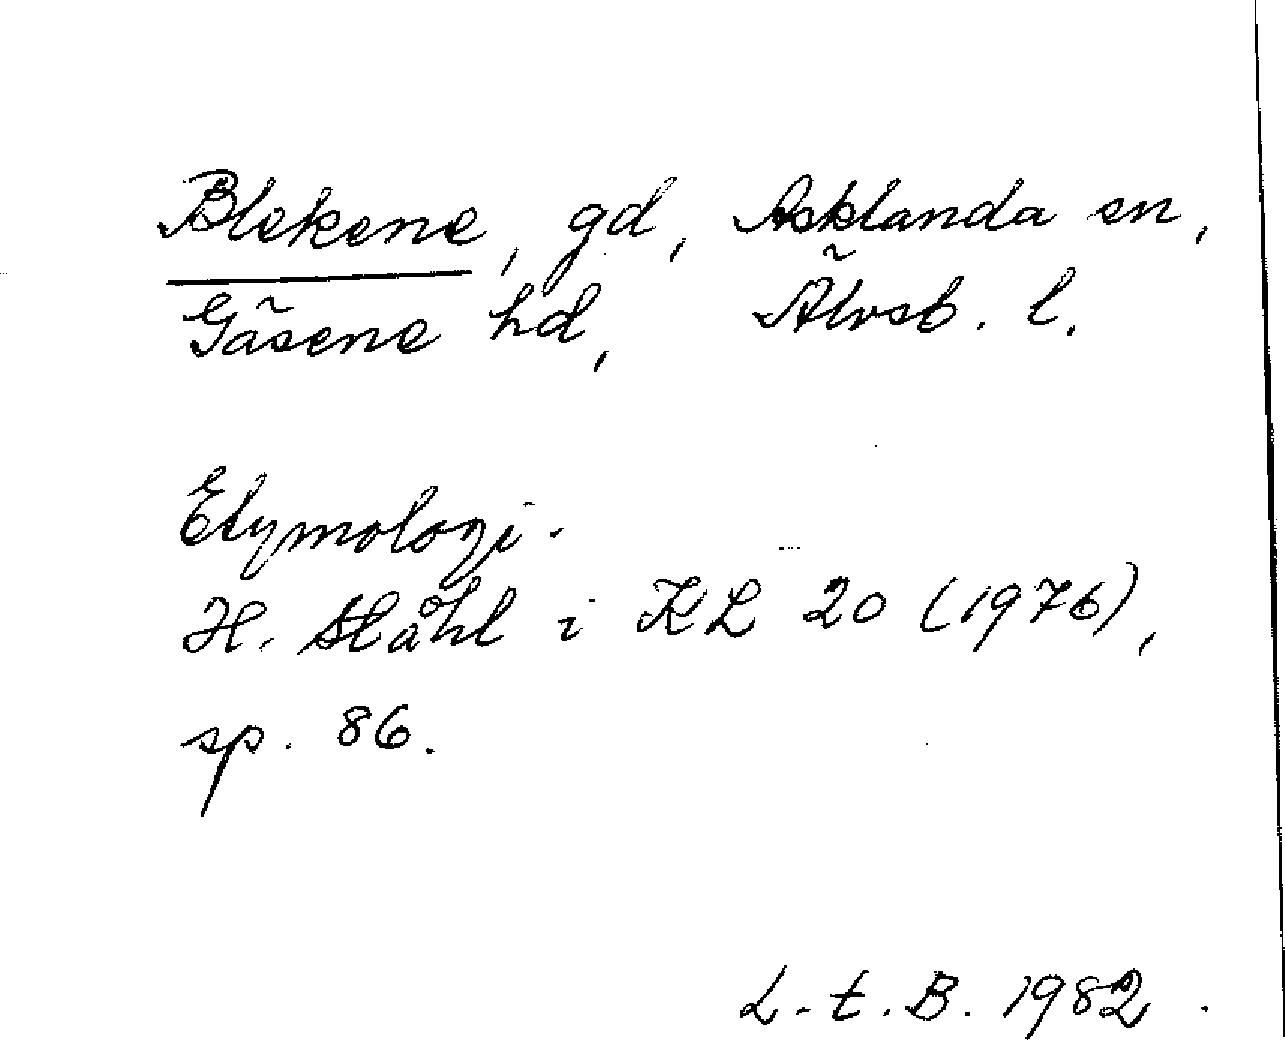 Blekene, gd, Asklanda sn,
Gäsene hd, Älvsb. l.
Etymologi.
H. Ståhl i KL 20 (1976),
sp. 86.
L. t. B. 1982.